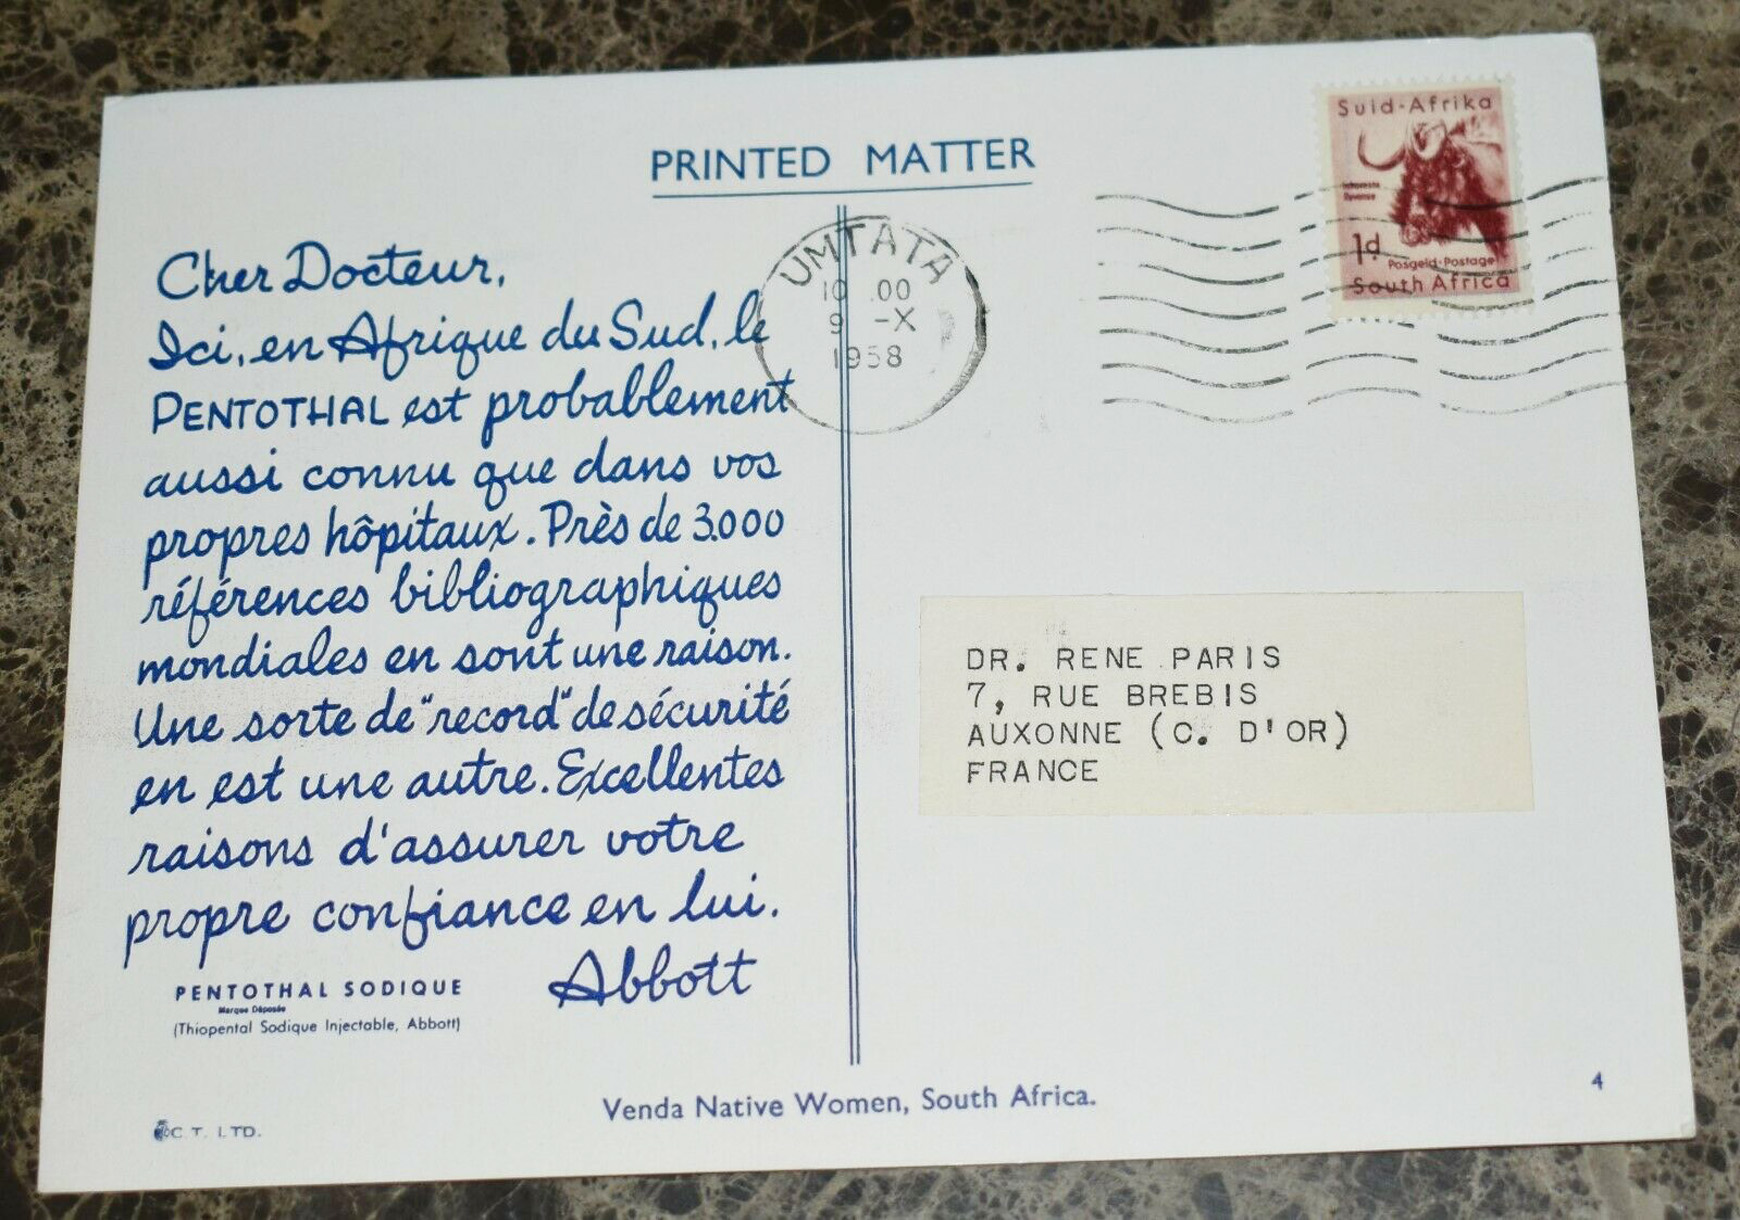 PRINTED MATTER
Suid-Afrika
1d.
Posgeld·Postage
South Africa
UMTATA
10 00
9 -X
1958
Cher Docteur,
Ici, en Afrique du Sud, le
PENTOTHAL est probablement
aussi connu que dans vos
propres hôpitaux. Près de 3.000
références bibliographiques
mondiales en sont une raison.
Une sorte de "record" de sécurité
en est une autre. Excellentes
raisons d'assurer votre
propre confiance en lui.
Abbott
PENTOTHAL SODIQUE
Marque Déposée
(Thiopental Sodique Injectable, Abbott)
DR. RENE PARIS
7, RUE BREBIS
AUXONNE (C. D'OR)
FRANCE
Venda Native Women, South Africa.
4
C. T. LTD.